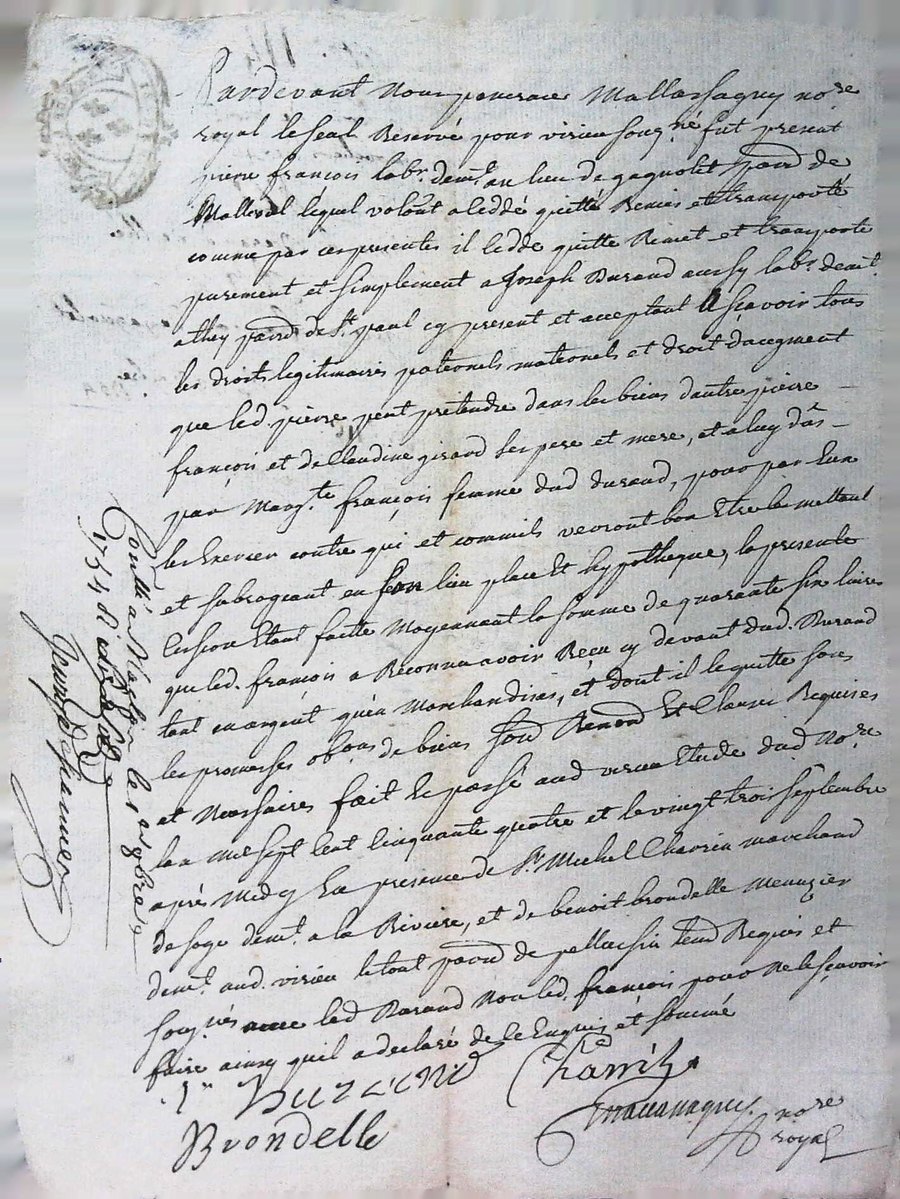 Pardevant Nous pancrace Mallassagny no.re
royal le seul Reservé pour virieu soug.né fut present
pierre françois lab.r dem.t au lieu de gagnolet parr.e de
Malleval lequel volont.t a ceddé quitté Remis et transporté
comme par ces presentes il cedde quitte Remet et transporte
purement et simplement a Joseph Durand aussy lab.r dem.t
a they parr.e de S.t paul cy present et acceptant Asçavoir tous
les droits legitimaires paternels maternels et droit d'augment
que led. pierre peut pretendre dans les biens d'autre pierre
françois et de Claudine girard ses pere et mere, et a luy dûs
par Marg.te françois femme dud durand, pour par luy
les Exercer contre qui et comm'il verront bon Etre le mettant
et subrogeant en son lieu place Et hypotheque, la presente
Cession Etant faitte Moyennant la somme de quarante six livres
que led. françois a Reconnu avoir Reçu cy devant dud. Durand
tant en argent qu'en Marchandises, et dont il le quitte sous
les promesses ob.ons de biens soud Renond Et Clauses Requises
et Necessaires fait Et passé aud virieu Etude dud No.re
l'an mil sept Cent Cinquante quatre et le vingt trois septembre
après Midy En presence de S.r Michel Chavrin marchand
de soye dem.t a la Riviere, et de benoit brondelle Menuzier
dem.t aud. virieu le tout parr.e de pellussin temd Requis et
soug.nés avec led Durand Non led. françois pour ne le sçavoir
faire ainsy quil a declaré de ce Enquis et sommé
Durand
Brondelle
no.re
royal
Con.llé a
1754